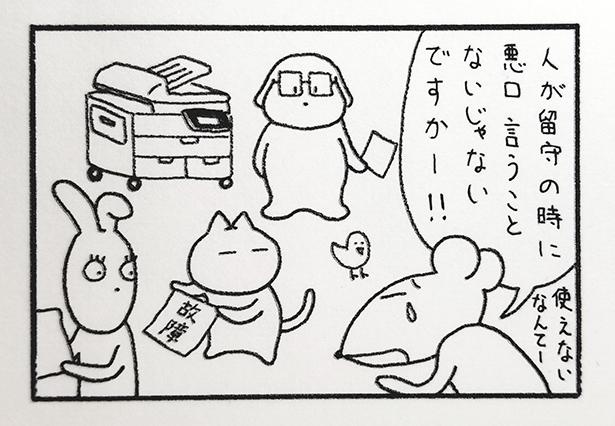 人が留守の時に
悪口言うこと
ないじゃない
ですかー!!
使えない
なんてー
故障